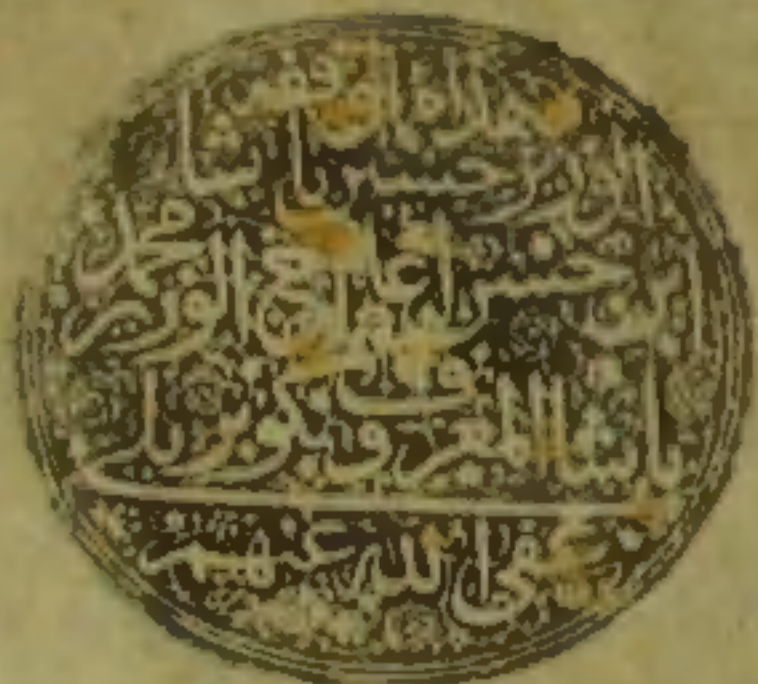 هذا ما وقفه
الوزير حسين باشا
ابن حسن اغا اخ الوزير محمد
باشا المعروف بكوبريلي
عفى الله عنهم